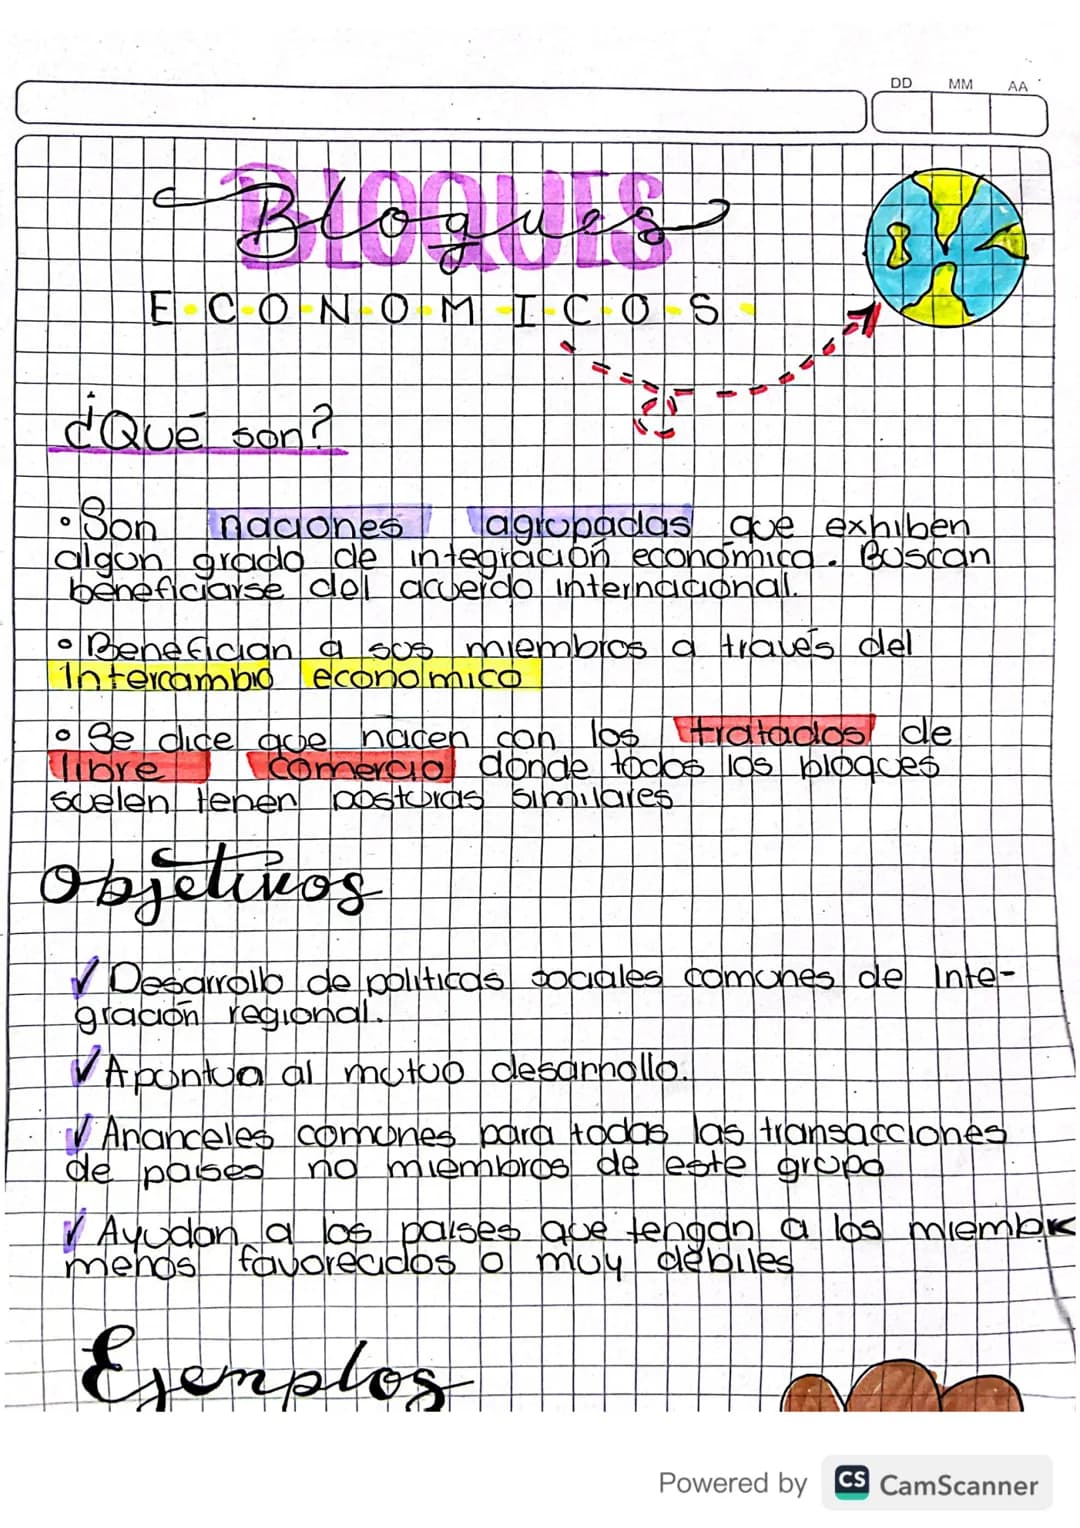 DD MM AA
BLOQUES
Bloques
E-C-O-N-O-M-I-C-O-S-
¿Qué son?
• Son naciones agrupadas que exhiben
algun grado de integración económica. Buscan
beneficiarse del acuerdo internacional.
• Benefician a sus miembros a través del
Intercambio economico
• Se dice que nacen con los tratados de
libre comercio donde todos los bloques
suelen tenen posturas similares
Objetivos
✓ Desarrollo de politicas sociales comunes de Inte-
gración regional.
✓ Apuntua al mutuo desarrollo.
✓ Aranceles comunes para todas las transacciones
de paises no miembros de este grupo
✓ Ayudan a los paises que tengan a los miembr
menos favorecidos o muy débiles
Ejemplos
Powered by CS CamScanner